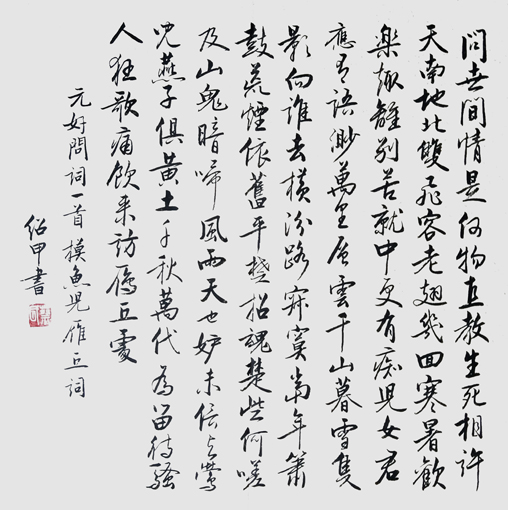 問世間情是何物直教生死相許
天南地北雙飛客老翅幾回寒暑歡
樂趣離別苦就中更有痴兒女君
應有語渺萬里層雲千山暮雪隻
影向誰去橫汾路寂寞當年簫
鼓荒煙依舊平楚招魂楚些何嗟
及山鬼暗啼風雨天也妒未信與鶯
兒燕子俱黃土千秋萬代為留待騷
人狂歌痛飲來訪雁丘處
元好問詞一首摸魚兒雁丘詞
紹甲書